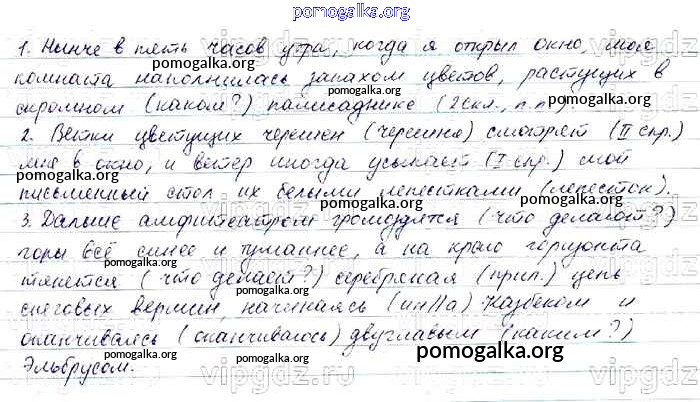 pomogalka.org
1. Нынче в пять часов утра, когда я открыл окно, моя
комната наполнилась запахом цветов, растущих в
скромном (каком?) палисаднике (2 скл., п.п.).
2. Ветки цветущих черешен (черешня) смотрят (II спр.)
мне в окно, и ветер иногда усыпает (I спр.) мой
письменный стол их белыми лепестками (лепесток).
3. Дальше амфитеатром громоздятся (что делают?)
горы всё синее и туманнее, а на краю горизонта
тянется (что делает?) серебряная (прил.) цепь
снеговых вершин, начинаясь (ин//а) Казбеком и
оканчиваясь (оканчиваюсь) двуглавым (каким?)
Эльбрусом.
pomogalka.org
pomogalka.org
pomogalka.org
pomogalka.org
pomogalka.org
pomogalka.org
pomogalka.org
pomogalka.org
pomogalka.org
vipgdz.ru
vipgdz.ru